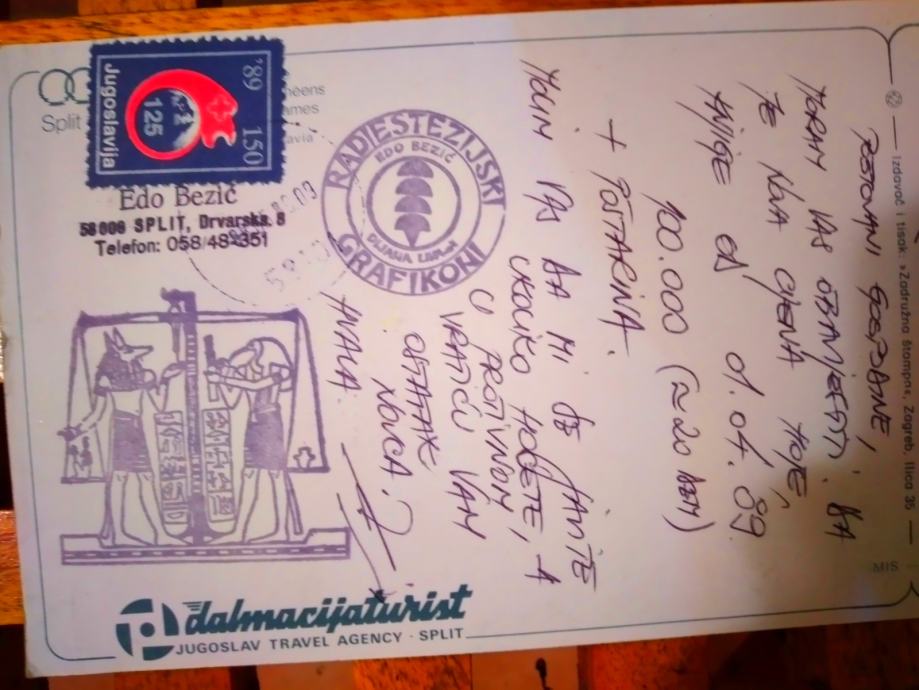 POŠTOVANI GOSPODINE,
MORAM VAS OBAVIJESTITI, DA
JE NOVA CIJENA MOJE
KNJIGE OD 01.04.89
100.000 (≈20 DEM)
+ POŠTARINA.
MOLIM VAS DA MI SE JAVITE
UKOLIKO HOĆETE, A
U PROTIVNOM
VRATIĆU VAM
OSTATAK
NOVCA.
HVALA
Split
ames
avia
'89 150
Jugoslavija
125
Edo Bezić
58000 SPLIT, Drvarska 8
Telefon: 058/48-351
RADIESTEZIJSKI
EDO BEZIĆ
DIJANA
GRAFIKONI
dalmacijaturist
JUGOSLAV TRAVEL AGENCY · SPLIT
Izdavač i tisak: »Zadružna štampa«, Zagreb, Ilica 35
MIS